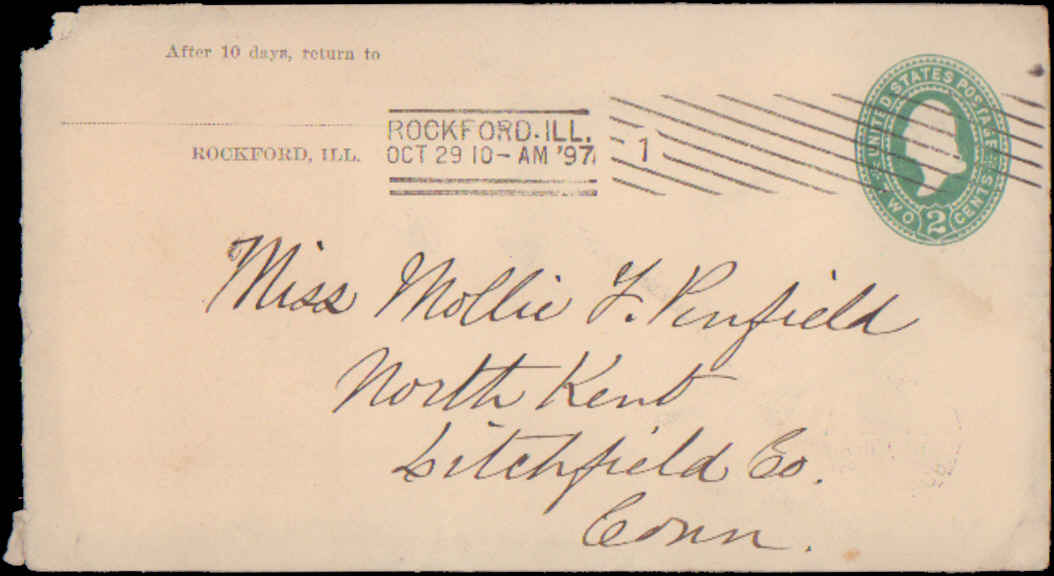 After 10 days, return to
ROCKFORD, ILL.
ROCKFORD. ILL.
OCT 29 10-AM '97
1
UNITED STATES POSTAGE
TWO 2 CENTS
Miss Mollie F. Penfield
North Kent
Litchfield Co.
Conn.